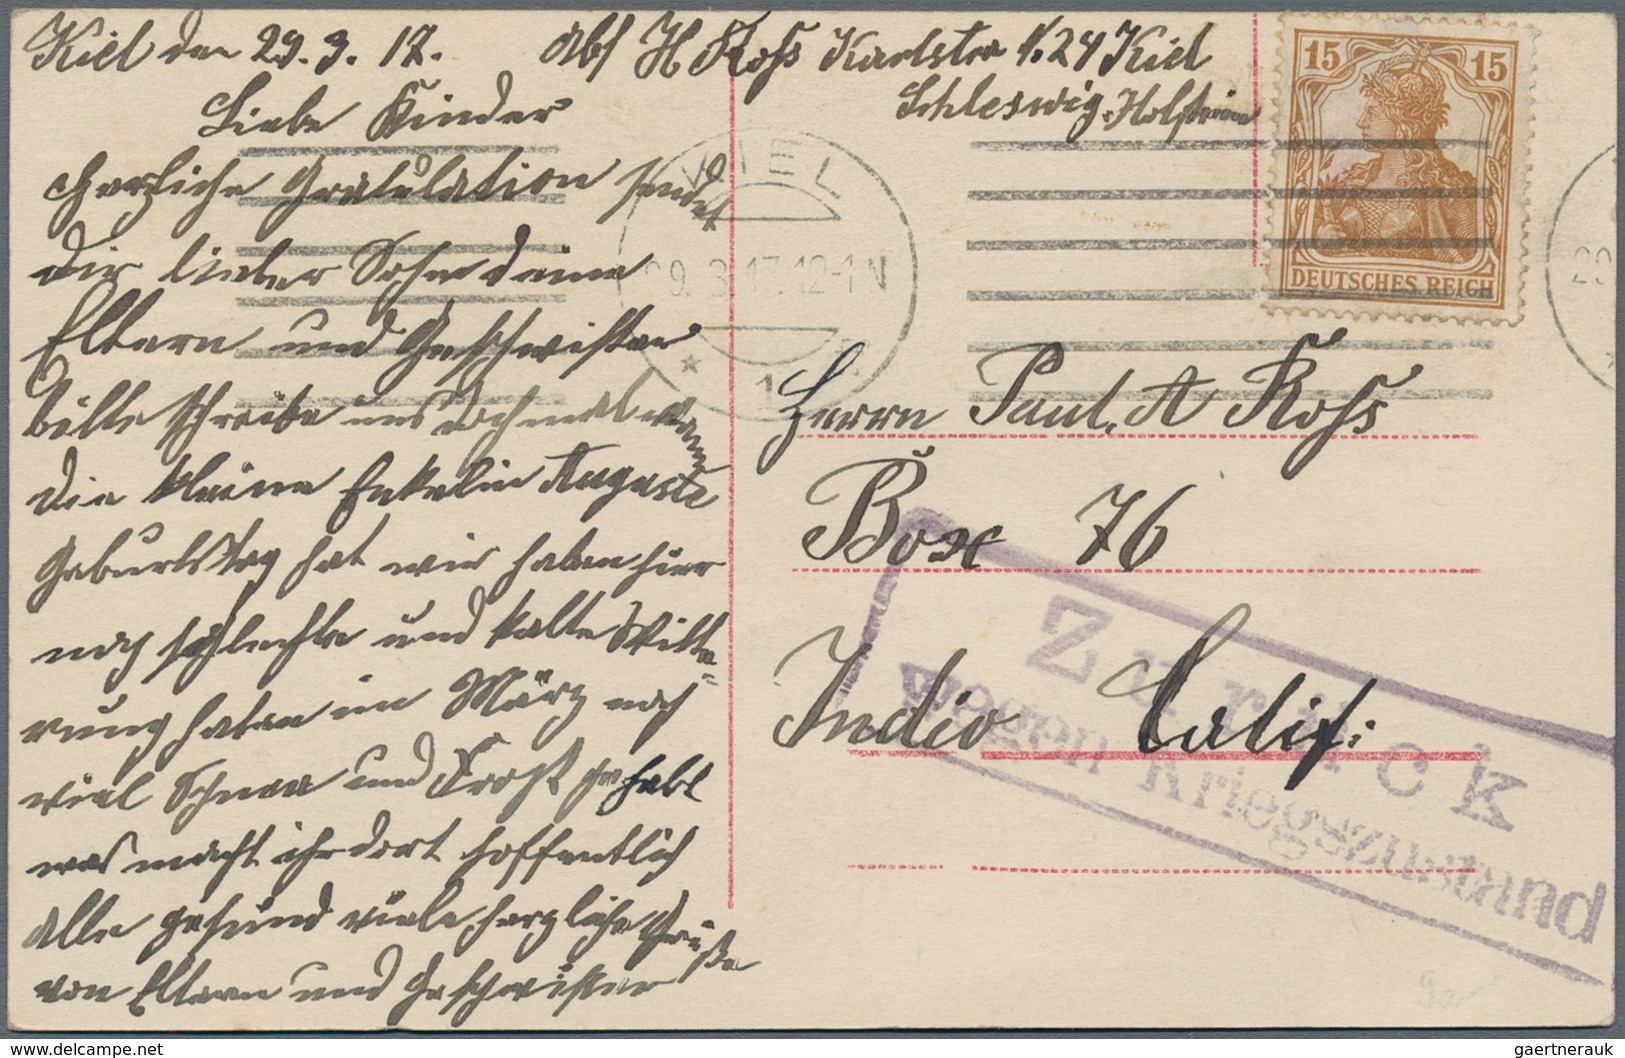 Kiel den 29.3.17. Abs H Koss Karlstra N. 24 Kiel
Schleswig-Holstein
Liebe Kinder
Herzliche Gratulation sendet
dir lieber Sohn deine
Eltern und Geschwister
bitte schreibe uns doch mal wann
die kleine Enkelin Auguste
Geburtstag hat wir haben hier
noch schlechte und kalte Witte=
rung haben im März noch
viel Schnee und Frost gehabt
was macht ihr dort hoffentlich
alle gesund viele herzliche Grüße
von Eltern und Geschwister
KIEL
29.3.17.12-1N
* 1
15 15
DEUTSCHES REICH
29
Herrn Paul. A Koss
Box 76
Indio Calif:
Zurück
wegen Kriegszustand
delcampe.net
gaertnerauk